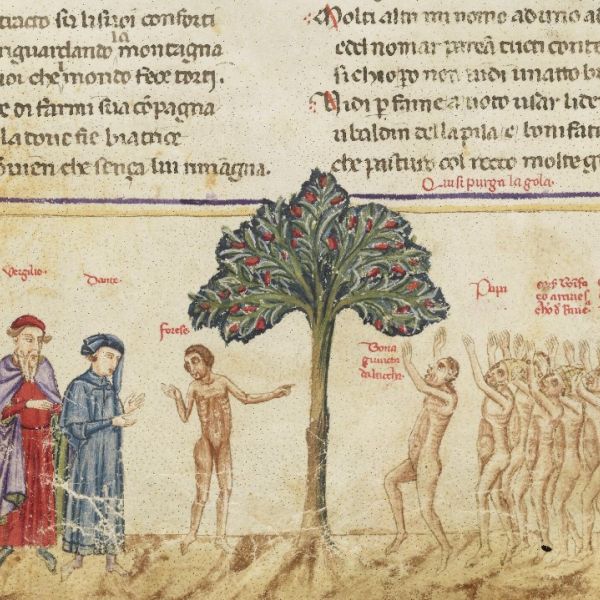 tracto su li suoi conforti
riguardando la montagna
che mondo fece torti.
e di farmi sua cōpagna
la doue fie biatrice
che senza lui rimagna.
Molti altri mi nomo ad uno ad
e del nomar parean tucti conte
si chio po non uidi un atto b
Vidi p fame a uoto usar li de
ubaldin della pila e bonifati
che pasturo col rocco molte g
Qui si purga la gola.
Vergilio.
Dante.
forese
Bona
giunta
da luccha.
Papa